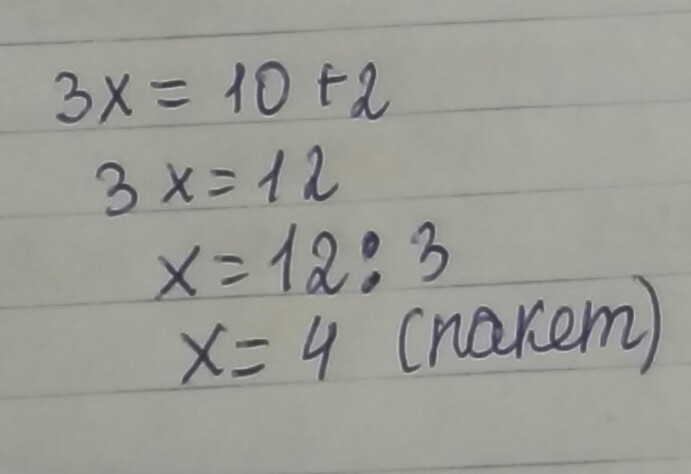 3x = 10 + 2
3x = 12
x = 12 : 3
x = 4 (пакет)